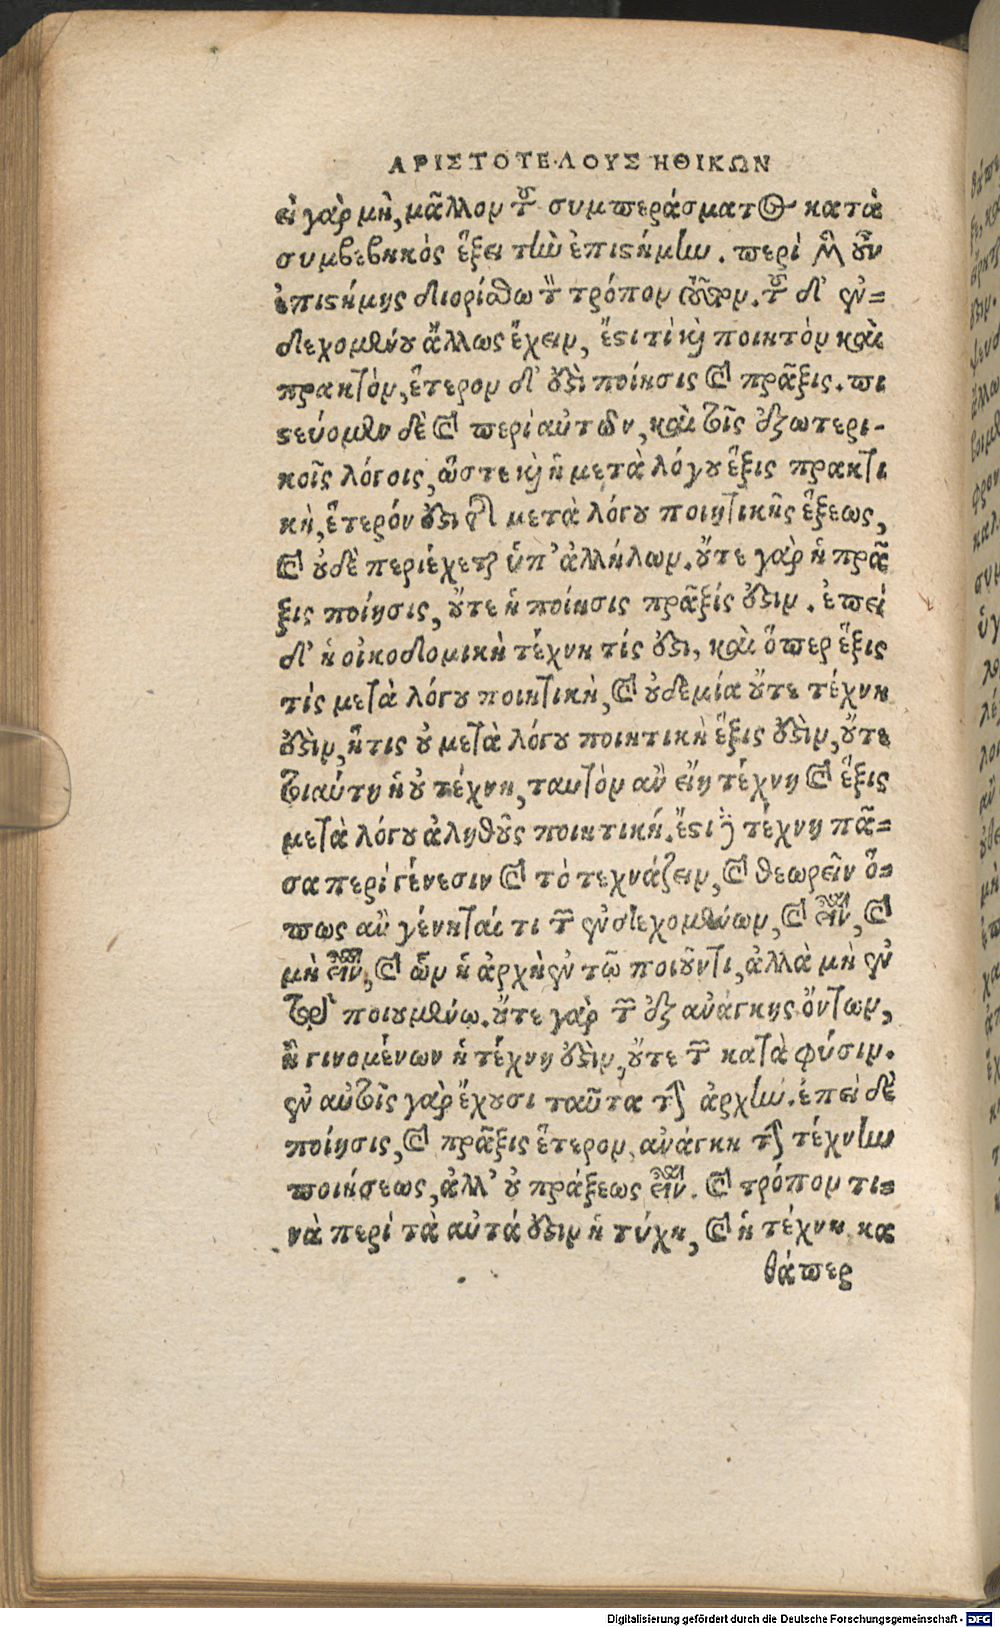 ΑΡΙΣΤΟΤΕΛΟΥΣ ΗΘΙΚΩΝ
εἰ γὰρ μὴ, μᾶλλον τοῦ συμπεράσματος κατὰ
συμβεβηκὸς ἕξει τὴν ἐπιστήμην. περὶ μὲν οὖν
ἐπιστήμης διορίσθω τὸν τρόπον τοῦτον. τοῦ δ' ἐν-
δεχομένου ἄλλως ἔχειν, ἔστι τὶ καὶ ποιητὸν καὶ
πρακτὸν, ἕτερον δ' ἐστὶ ποίησις καὶ πρᾶξις. πι
στεύομεν δὲ καὶ περὶ αὐτῶν, καὶ τοῖς ἐξωτερι-
κοῖς λόγοις, ὥστε καὶ ἡ μετὰ λόγου ἕξις πρακτι
κὴ, ἕτερόν ἐστι τῆς μετὰ λόγου ποιητικῆς ἕξεως,
καὶ οὐδὲ περιέχεται ὑπ' ἀλλήλων. οὔτε γὰρ ἡ πρᾶ
ξις ποίησις, οὔτε ἡ ποίησις πρᾶξίς ἐστιν. ἐπεὶ
δ' ἡ οἰκοδομικὴ τέχνη τίς ἐστι, καὶ ὅπερ ἕξις
τίς μετὰ λόγου ποιητικὴ, καὶ οὐδεμία οὔτε τέχνη
ἐστὶν, ἥτις οὐ μετὰ λόγου ποιητικὴ ἕξις ἐστὶν, οὔτε
τοιαύτη ἣ οὐ τέχνη, ταυτὸν ἂν εἴη τέχνη καὶ ἕξις
μετὰ λόγου ἀληθοῦς ποιητική. ἔστι δὲ τέχνη πᾶ-
σα περὶ γένεσιν καὶ τὸ τεχνάζειν, καὶ θεωρεῖν ὅ-
πως ἂν γένηταί τι τῶν ἐνδεχομένων, καὶ εἶναι, καὶ
μὴ εἶναι, καὶ ὧν ἡ ἀρχὴ ἐν τῷ ποιοῦντι, ἀλλὰ μὴ ἐν
τῷ ποιουμένῳ. οὔτε γὰρ τῶν ἐξ ἀνάγκης ὄντων,
ἢ γινομένων ἡ τέχνη ἐστὶν, οὔτε τῶν κατὰ φύσιν.
ἐν αὐτοῖς γὰρ ἔχουσι ταῦτα τὴν ἀρχὴν. ἐπεὶ δὲ
ποίησις, καὶ πρᾶξις ἕτερον, ἀνάγκη τὴν τέχνην
ποιήσεως, ἀλλ' οὐ πράξεως εἶναι. καὶ τρόπον τι-
νὰ περὶ τὰ αὐτά ἐστιν ἡ τύχη, καὶ ἡ τέχνη κα
θάπερ
Digitalisierung gefördert durch die Deutsche Forschungsgemeinschaft - DFG